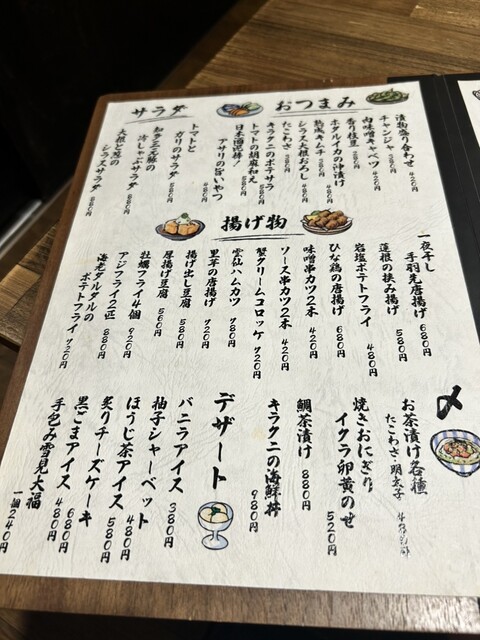 おつまみ
漬物盛り合わせ 420円
チャンジャ 380円
肉味噌キャベツ 420円
香り枝豆 380円
ホタルイカの沖漬け
熟成キムチ 380円
シラス大根おろし 480円
たこわさ 380円
キラクニのポテサラ
トマトの胡麻和え 380円
日本酒泥棒!
アサリの旨いやつ 480円
サラダ
トマトと
ガリのサラダ 580円
知多三元豚の
冷しゃぶサラダ 880円
大根と
シラスサラダ 680円
揚げ物
一夜干し
手羽先唐揚げ 680円
蓮根の挟み揚げ 580円
岩塩ポテトフライ 480円
ひな鶏の唐揚げ 680円
味噌串カツ2本 420円
ソース串カツ2本 420円
蟹クリームコロッケ 720円
雲仙ハムカツ 780円
里芋の唐揚げ 420円
揚げ出し豆腐 580円
厚揚げ豆腐 560円
牡蠣フライ4個 920円
アジフライ2匹 880円
海老タルタルの
ポテトフライ 720円
〆
お茶漬け各種
たこわさ・明太子
焼きおにぎり
イクラ卵黄のせ 520円
鯛茶漬け 880円
キラクニの海鮮丼 980円
デザート
バニラアイス 380円
柚子シャーベット
ほうじ茶アイス 480円
炙りチーズケーキ 580円
黒ごまアイス 480円
手包み雪見大福
一個240円